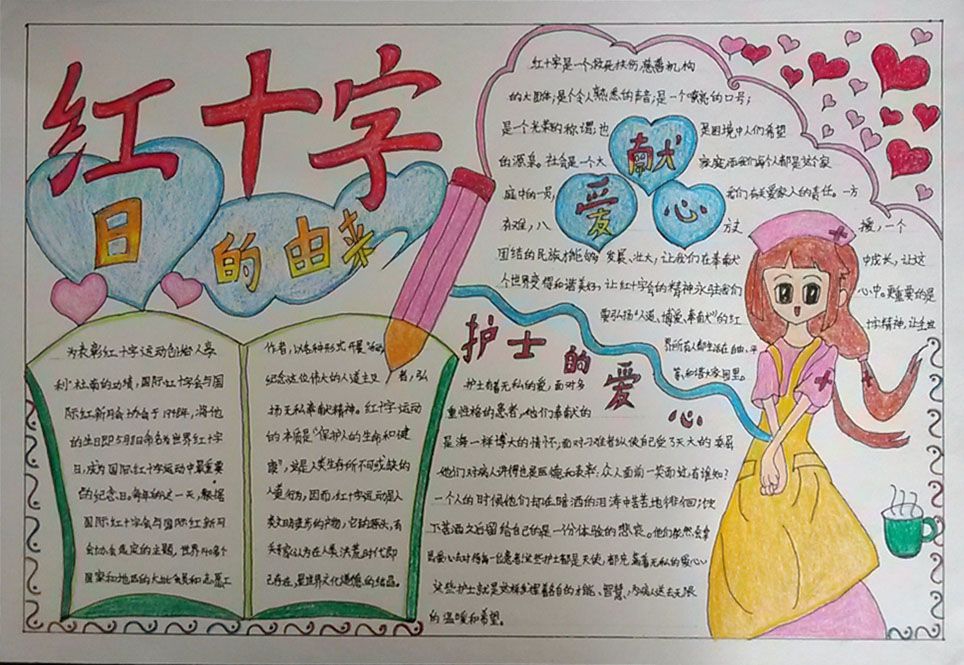 红十字
日的由来
为表彰红十字运动创始人亨
利·杜南的功绩，国际红十字会与国
际红新月会协会于1948年，将他
的生日即5月8日命名为世界红十字
日，成为国际红十字运动中最重要
的纪念日。每年的这一天，根据
国际红十字会与国际红新月
会协会选定的主题，世界
国家和地区的大批会员和志愿工
作者，以各种形式开展
纪念这位伟大的人道主义者，弘
扬无私奉献精神。红十字运动
的本质是“保护人的生命和健
康”，这是人类生存所不可或缺的
人道行为，因而，红十字运动是人
类文明进步的产物，它的源头，有
关专家认为在人类洪荒时代即
已存在，是世界文化道德的结晶。
红十字是一个救死扶伤慈善机构
的大团体；是个令人熟悉的声音；是一个嘹亮的口号；
是一个光荣的称谓；也是困境中人们希望
的源泉。社会是一个大家庭，而我们每个人都是这个家
庭中的一员，我们有关爱家人的责任。一方
有难，八方支援，一个
团结的民族才能够发展、壮大，让我们在奉献中成长，让这
个世界变得和谐美好，让红十字会的精神永驻我们心中。更重要的是
要弘扬“人道、博爱、奉献”的红十字精神，让全世
界所有人都生活在自由、平
等、和谐大家园里。
献
爱心
护士的爱心
护士有着无私的爱，面对多
重性格的患者，他们奉献的
是海一样博大的情怀，面对刁难者纵使自己受了天大的委屈
他们对病人讲得也是医德和表率；众人面前一笑而过，有谁知？
一个人的时候他们却在暗洒的泪涛中苦苦地徘徊；
下苦酒之后留给自己的是一分体验的悲哀。他们依然会拿
出爱心去对待每一位患者，这些护士都是天使，都充满着无私的爱心
这些护士就是这样发挥着各自的才能、智慧，为病人送去无限
的温暖和希望。